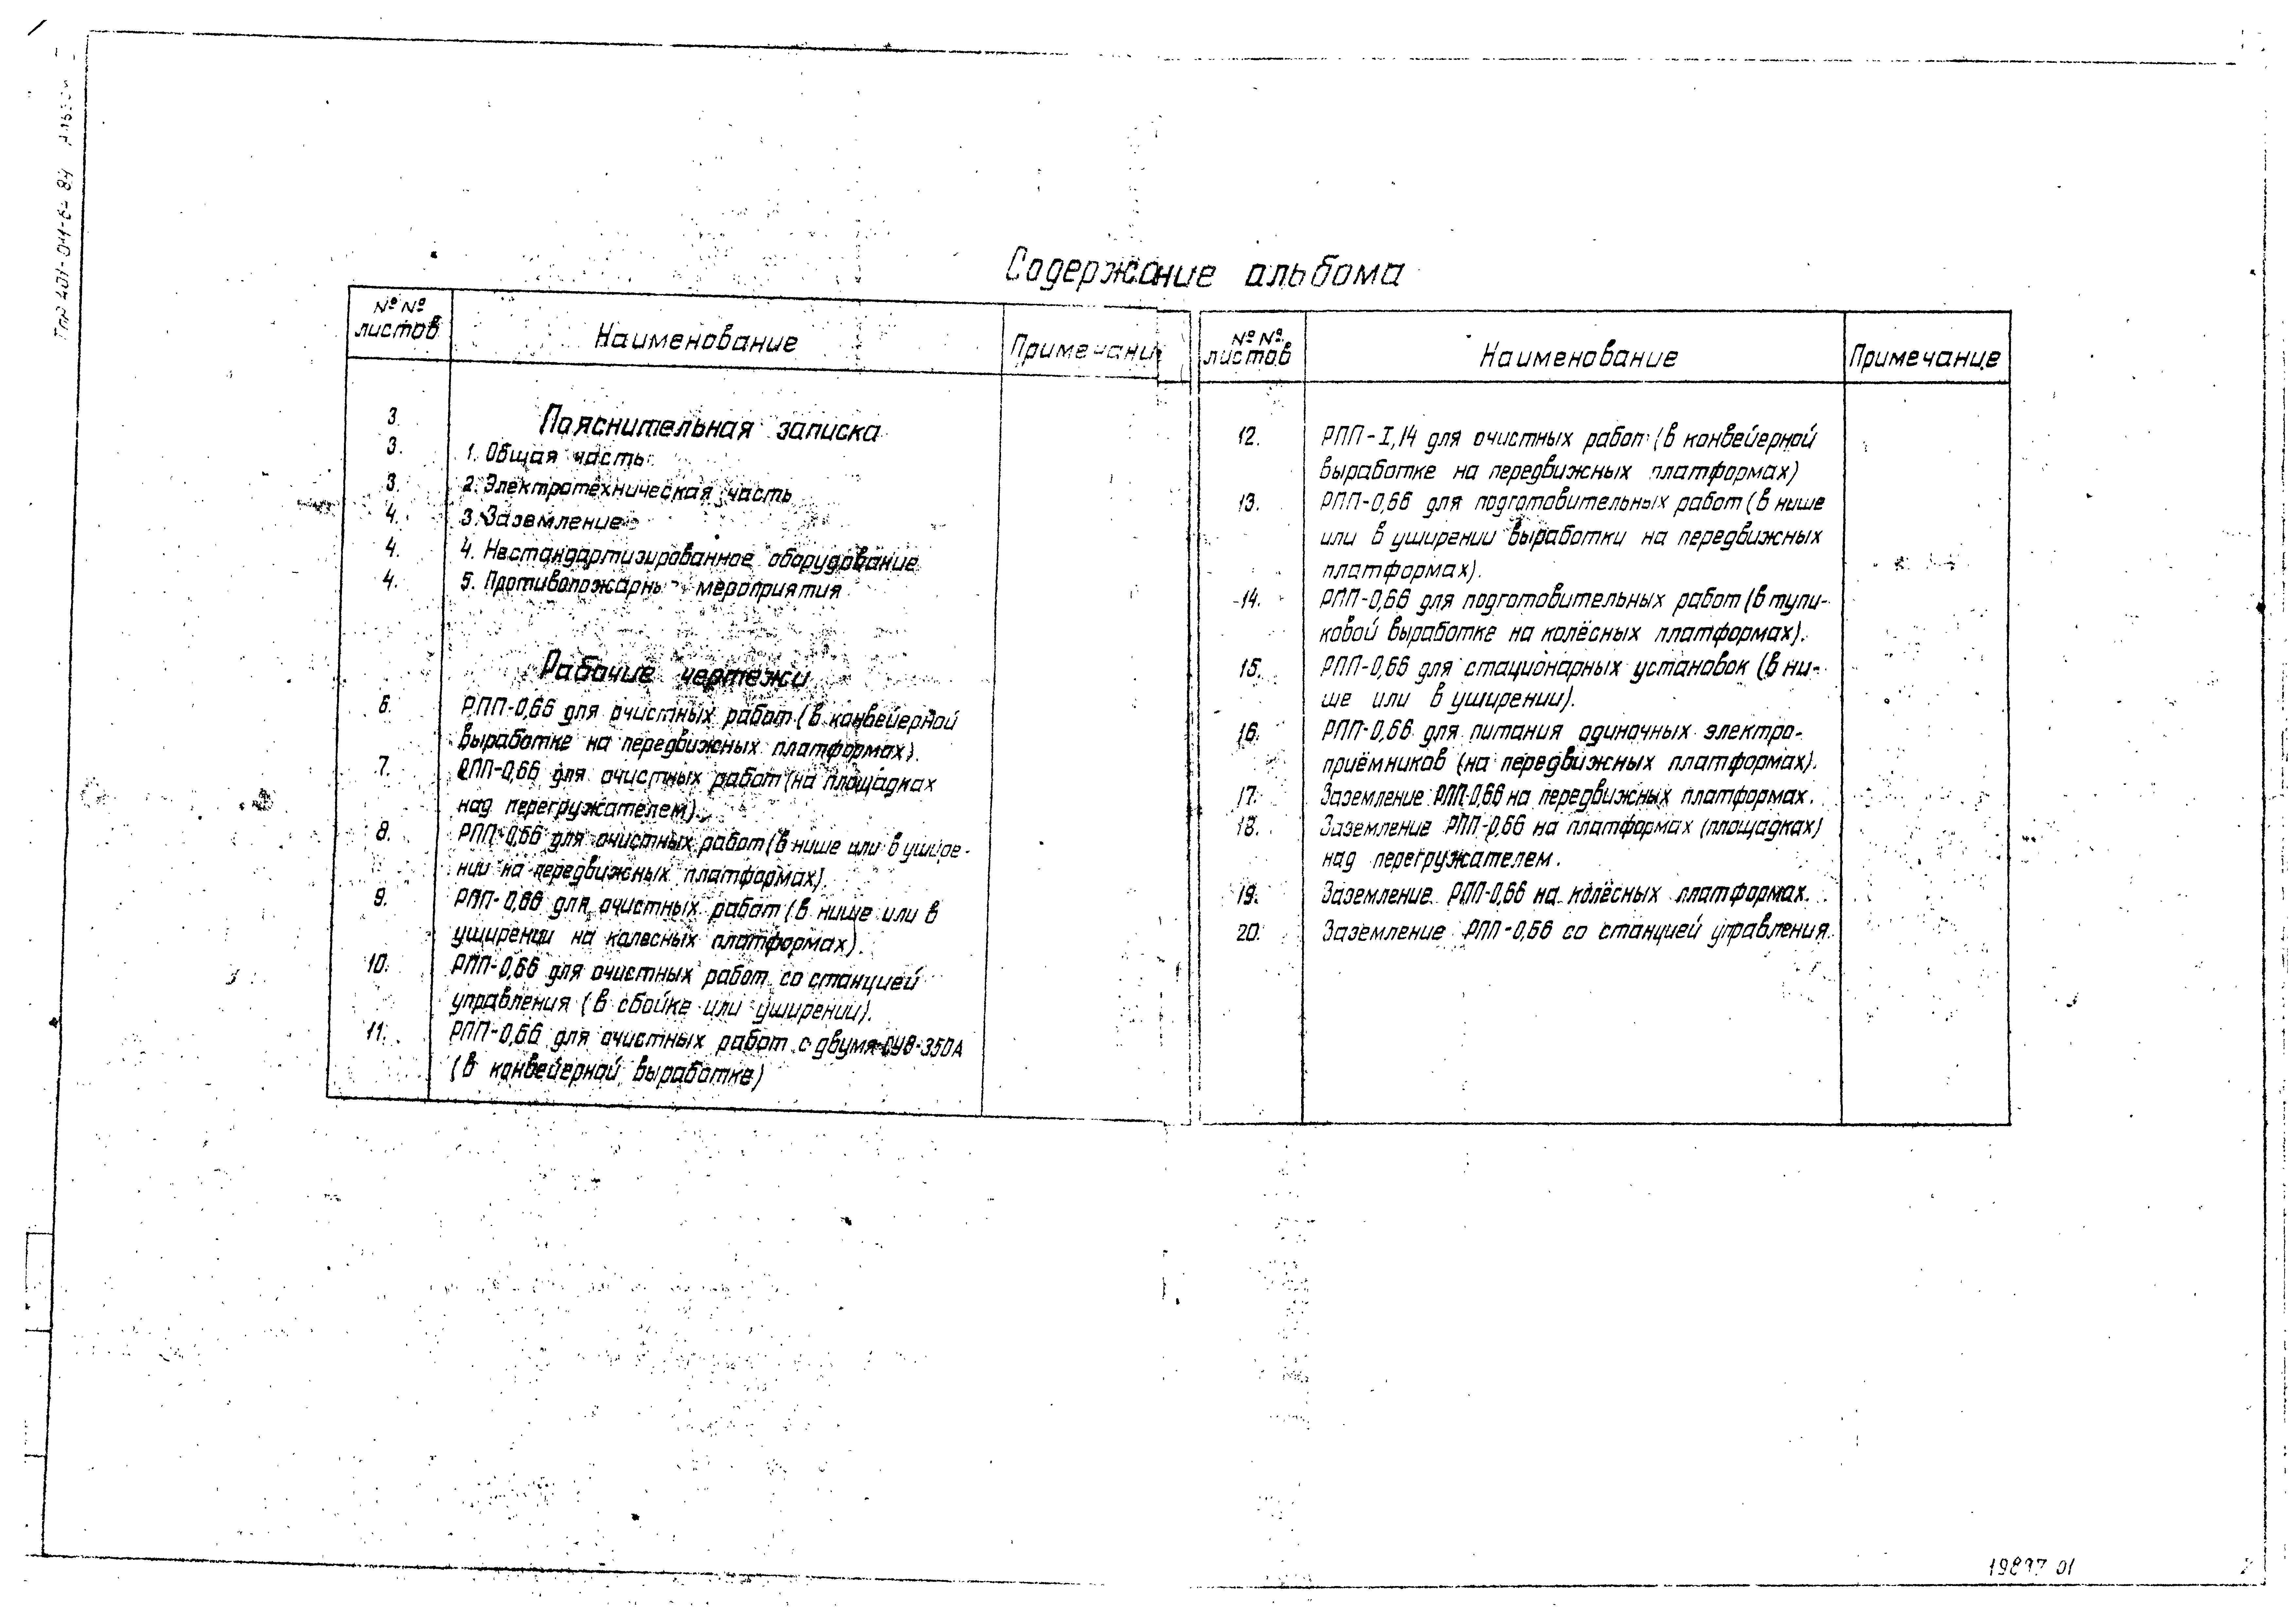 Содержание альбома
№ №
листов
Наименование
Примечани
3. Пояснительная записка
3. 1. Общая часть
3. 2. Электротехническая часть
4. 3. Заземление
4. 4. Нестандартизированное оборудование
4. 5. Противопожарны мероприятия
Рабочие чертежи
6. РПП-0,66 для очистных работ (в конвейерной
выработке на передвижных платформах).
7. РПП-0,66 для очистных работ (на площадках
над перегружателем).
8. РПП-0,66 для очистных работ (в нише или в ушире-
нии на передвижных платформах).
9. РПП-0,66 для очистных работ (в нише или в
уширении на колесных платформах).
10. РПП-0,66 для очистных работ со станцией
управления (в сбойке или уширении).
11. РПП-0,66 для очистных работ с двумя СУВ-350А
(в конвейерной выработке)
№ №
листов
Наименование
Примечание
12. РПП-I,14 для очистных работ (в конвейерной
выработке на передвижных платформах)
13. РПП-0,66 для подготовительных работ (в нише
или в уширении выработки на передвижных
платформах).
14. РПП-0,66 для подготовительных работ (в тупи-
ковой выработке на колёсных платформах).
15. РПП-0,66 для стационарных установок (в ни-
ше или в уширении).
16. РПП-0,66 для питания одиночных электро-
приёмников (на передвижных платформах).
17. Заземление РПП-0,66 на передвижных платформах.
18. Заземление РПП-0,66 на платформах (площадках)
над перегружателем.
19. Заземление РПП-0,66 на колёсных платформах.
20. Заземление РПП-0,66 со станцией управления.
19897 01
2